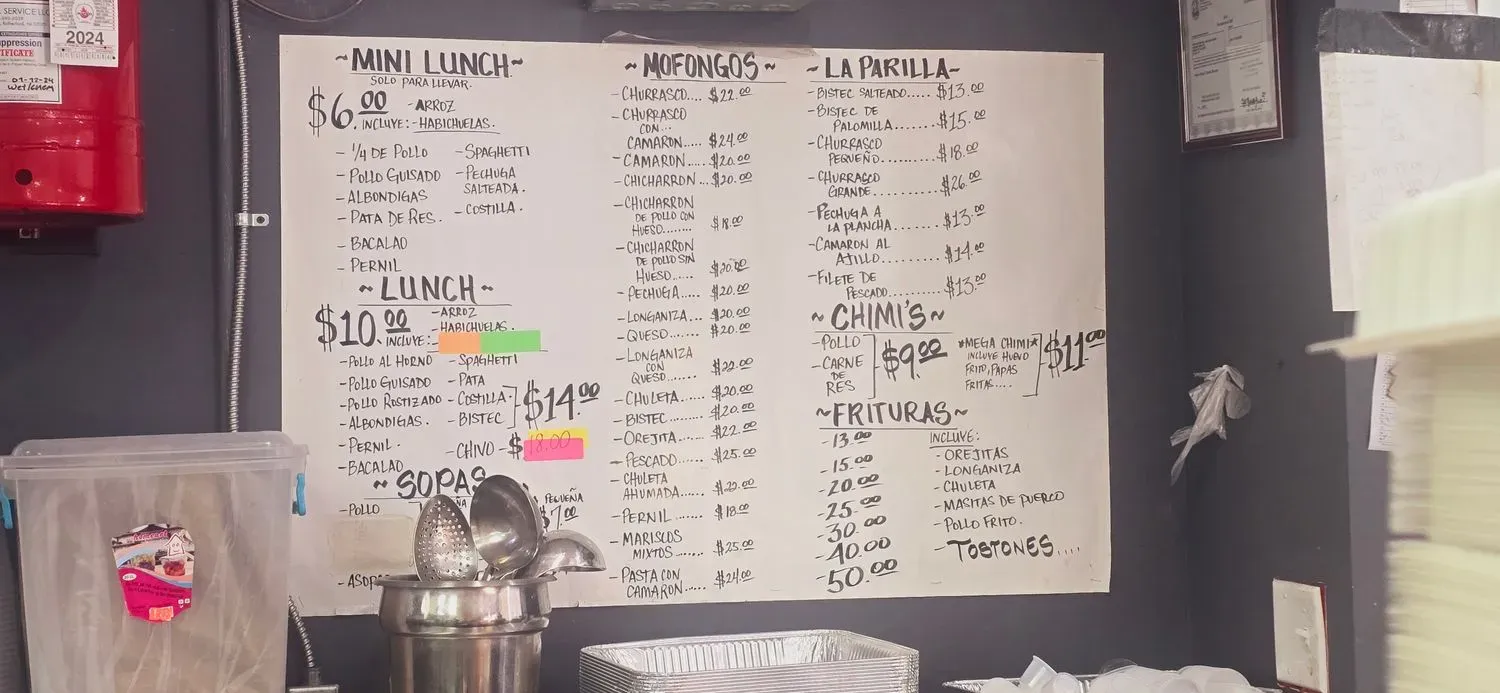 SERVICE LLC
2024
uppression
TIFICATE
01-12-24
Wet/CHEM
~MINI LUNCH~
SOLO PARA LLEVAR.
$6.00 -ARROZ
INCLUYE:-HABICHUELAS.
- 1/4 DE POLLO
- POLLO GUISADO
- ALBONDIGAS
- PATA DE RES.
- BACALAO
- PERNIL
- SPAGHETTI
- PECHUGA
SALTEADA.
- COSTILLA.
~LUNCH~
$10.00 -ARROZ
-HABICHUELAS.
INCLUYE:
-POLLO AL HORNO
-POLLO GUISADO
-POLLO ROSTIZADO
-ALBONDIGAS.
-PERNIL.
-BACALAO
- SPAGHETTI
- PATA
- COSTILLA.
- BISTEC
$14.00
-CHIVO -$18.00
~SOPAS
PEQUEÑA
-POLLO
$7.00
-ASOP
~MOFONGOS~
-CHURRASCO.... $22.00
-CHURRASCO
CON...
CAMARON..... $24.00
-CAMARON.... $20.00
-CHICHARRON... $20.00
-CHICHARRON
DE POLLO CON
HUESO........ $18.00
-CHICHARRON
DE POLLO SIN
HUESO..... $20.00
-PECHUGA..... $20.00
-LONGANIZA.... $20.00
-QUESO....... $20.00
-LONGANIZA
CON
QUESO....... $22.00
-CHULETA..... $20.00
-BISTEC...... $20.00
-OREJITA...... $22.00
-PESCADO...... $25.00
-CHULETA
AHUMADA...... $22.00
-PERNIL....... $18.00
-MARISCOS
MIXTOS....... $25.00
-PASTA CON
CAMARON..... $24.00
~LA PARILLA~
-BISTEC SALTEADO..... $13.00
-BISTEC DE
PALOMILLA....... $15.00
-CHURRASCO
PEQUEÑO.......... $18.00
-CHURRASCO
GRANDE........... $26.00
-PECHUGA A
LA PLANCHA........ $13.00
-CAMARON AL
AJILLO............ $14.00
-FILETE DE
PESCADO......... $13.00
~CHIMI'S~
-POLLO
-CARNE
DE
RES
$9.00
*MEGA CHIMI*
INCLUYE HUEVO
FRITO, PAPAS
FRITAS....
$11.00
~FRITURAS~
-13.00
-15.00
-20.00
-25.00
-30.00
-40.00
-50.00
INCLUYE:
- OREJITAS
- LONGANIZA
- CHULETA
- MASITAS DE PUERCO
- POLLO FRITO.
- TOSTONES....